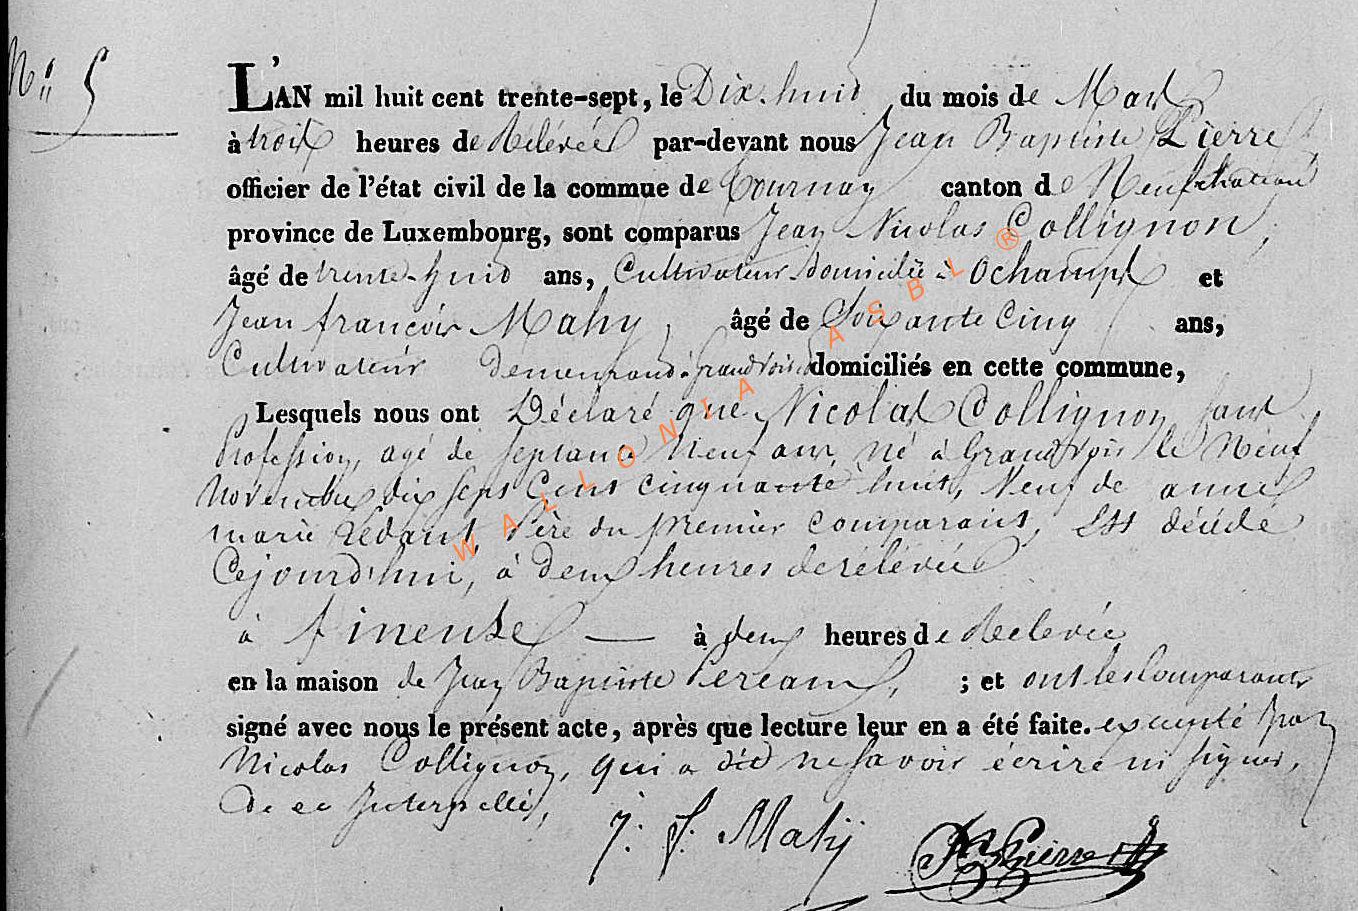 N° 5
L'AN mil huit cent trente-sept, le Dix-huid du mois de Mars
à trois heures de Relévée par-devant nous Jean Baptiste Pierre
officier de l'état civil de la commue de Tournay canton de Neufchateau
province de Luxembourg, sont comparus Jean Nicolas Collignon,
âgé de trente-huid ans, Cultivateur domicilié à Ochamps et
Jean francois Mahy, âgé de Soixante Cinq ans,
Cultivateur demeurand à Grandvoir domiciliés en cette commune,
Lesquels nous ont Déclaré que Nicolas Collignon sans
Profession, agé de septante Neuf ans, né à Grandvoir le Neuf
Novembre dix sept Cent cinquante huit, Veuf de anne
marie Lédant, Père du premier comparant, Est décédé
Cejourd'hui, à deux heures de rélévée
à fineuse à deux heures de Relevée
en la maison de Jean Baptiste ; et ont les Comparants
signé avec nous le présent acte, après que lecture leur en a été faite. excepté Jean
Nicolas Collignon, qui a déd ne savoir écrire ni signer,
De ce Interpellé,
J. f. Mahy
Pierre
WALLONIA ASBL ®